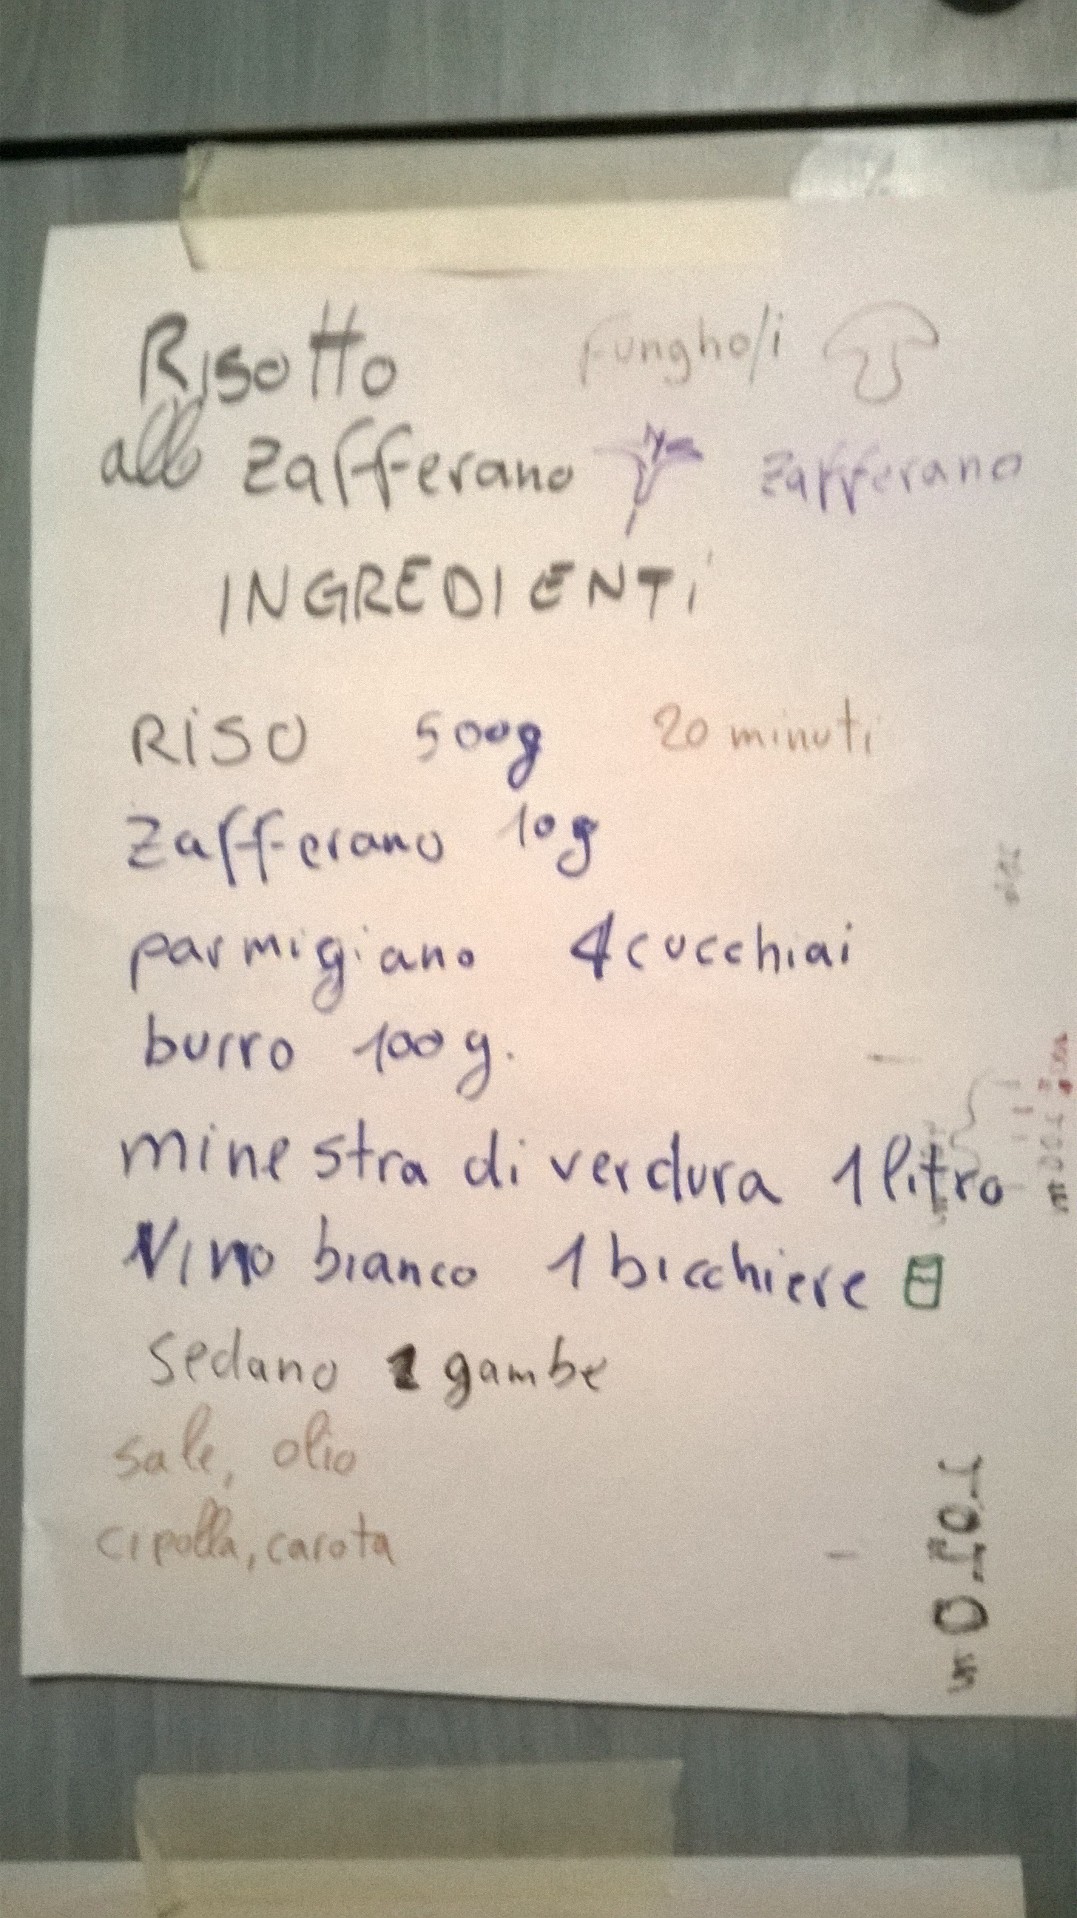 Risotto fungho/i
allo zafferano zafferano
INGREDIENTi
RiSO 500g 20 minuti
Zafferano 10g
parmigiano 4 cucchiai
burro 100 g.
minestra di verdura 1 litro
Vino bianco 1 bicchiere
sedano 1 gambe
sale, olio
cipolla, carota